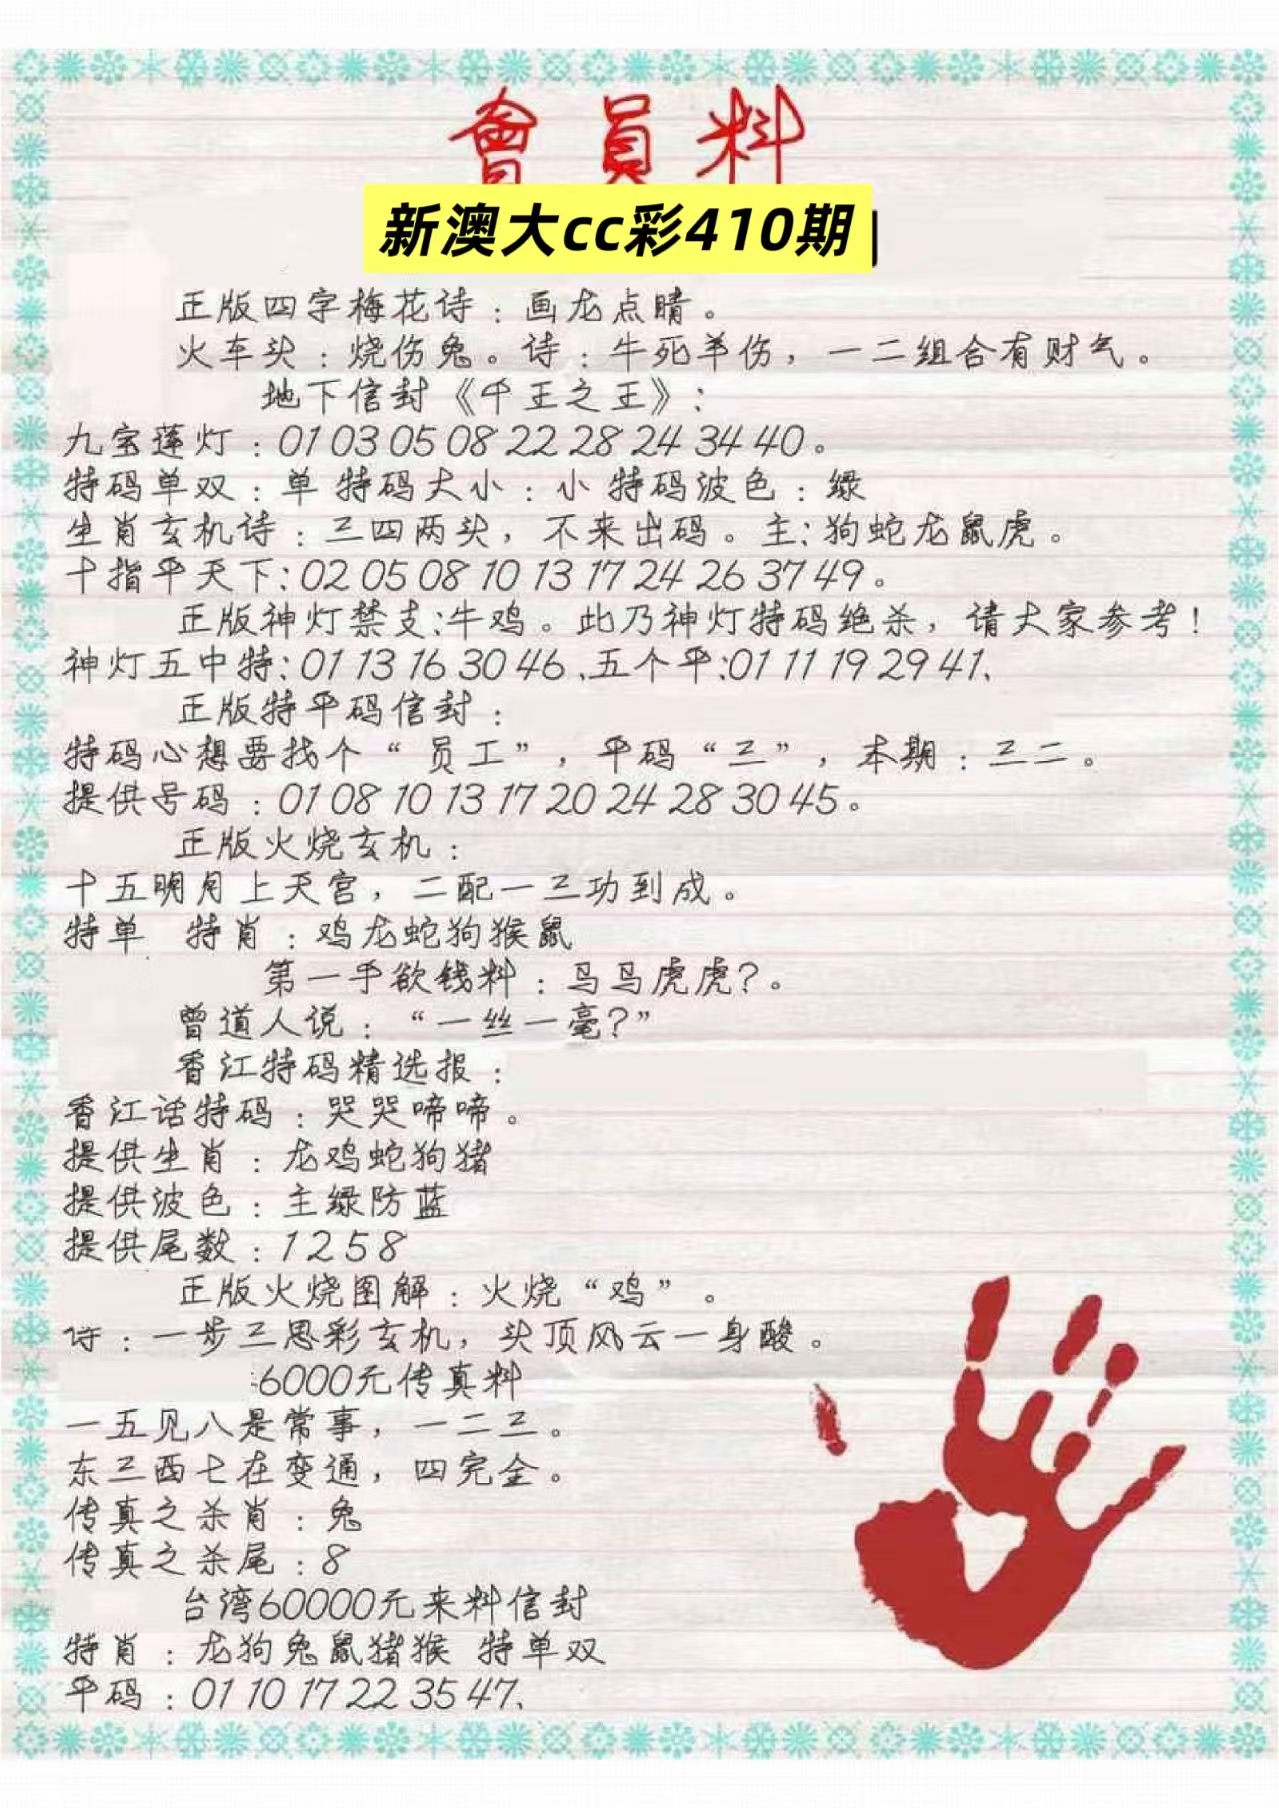 會員料
新澳大cc彩410期
正版四字梅花诗：画龙点睛。
火车头：烧伤兔。诗：牛死羊伤，一二组合有财气。
地下信封《千王之王》：
九宝莲灯：01 03 05 08 22 28 24 34 40。
特码单双：单 特码大小：小 特码波色：绿
生肖玄机诗：三四两头，不来出码。主：狗蛇龙鼠虎。
十指平天下：02 05 08 10 13 17 24 26 37 49。
正版神灯禁支：牛鸡。此乃神灯特码绝杀，请大家参考！
神灯五中特：01 13 16 30 46、五个平：01 11 19 29 41、
正版特平码信封：
特码心想要找个“员工”，平码“三”，本期：三二。
提供号码：01 08 10 13 17 20 24 28 30 45。
正版火烧玄机：
十五明月上天宫，二配一三功到成。
特单 特肖：鸡龙蛇狗猴鼠
第一手欲钱料：马马虎虎？。
曾道人说：“一丝一毫？”
香江特码精选报：
香江话特码：哭哭啼啼。
提供生肖：龙鸡蛇狗猪
提供波色：主绿防蓝
提供尾数：1 2 5 8
正版火烧图解：火烧“鸡”。
诗：一步三思彩玄机，头顶风云一身酸。
6000元传真料
一五见八是常事，一二三。
东三西七在变通，四完全。
传真之杀肖：兔
传真之杀尾：8
台湾60000元来料信封
特肖：龙狗兔鼠猪猴 特单双
平码：01 10 17 22 35 47、